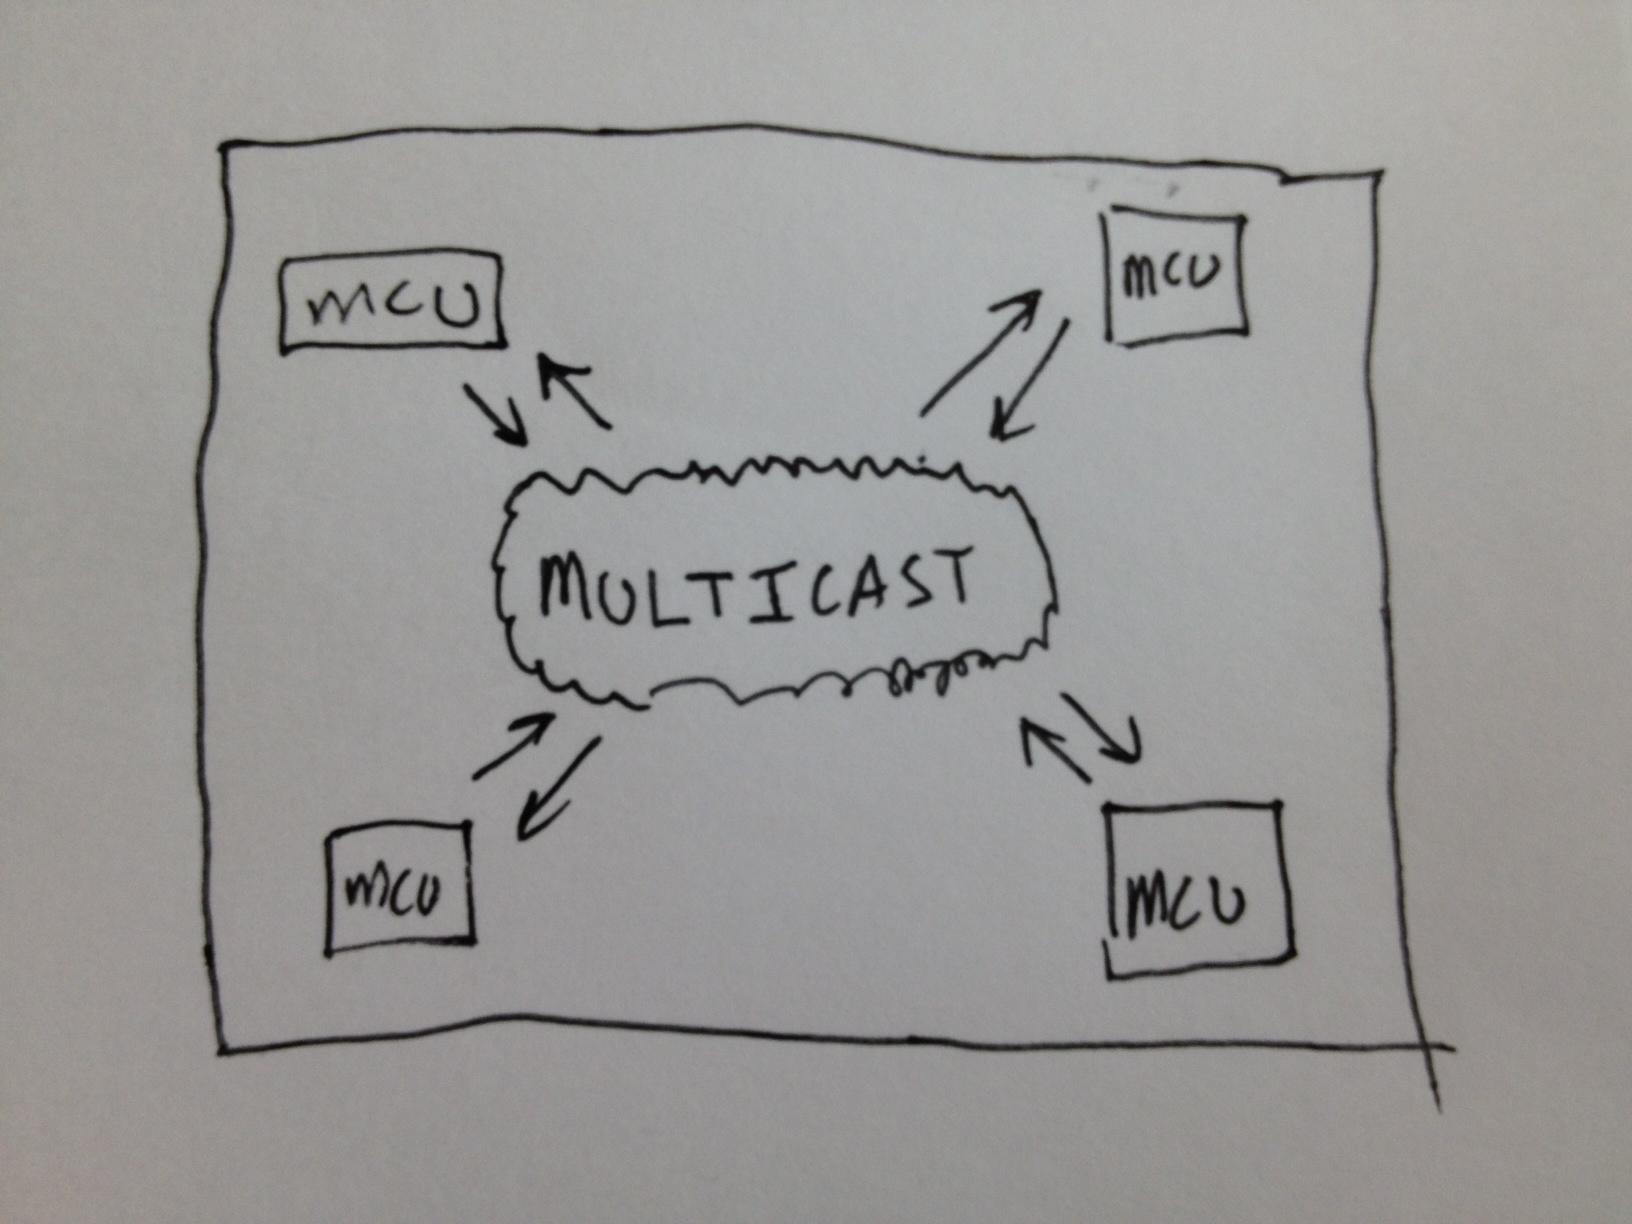 MCU
MCU
MULTICAST
MCU
MCU